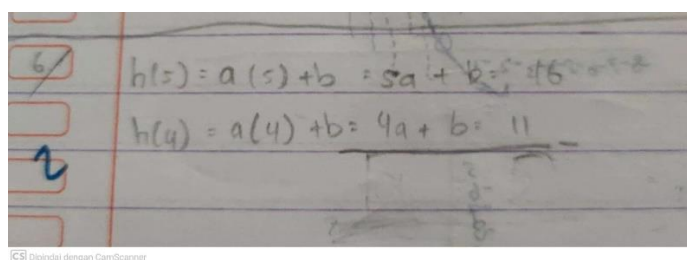 6/
h(5) = a(5) + b = 5a + b = 16
h(4) = a(4) + b = 4a + b = 11 -
2
CS Dipindai dengan CamScanner